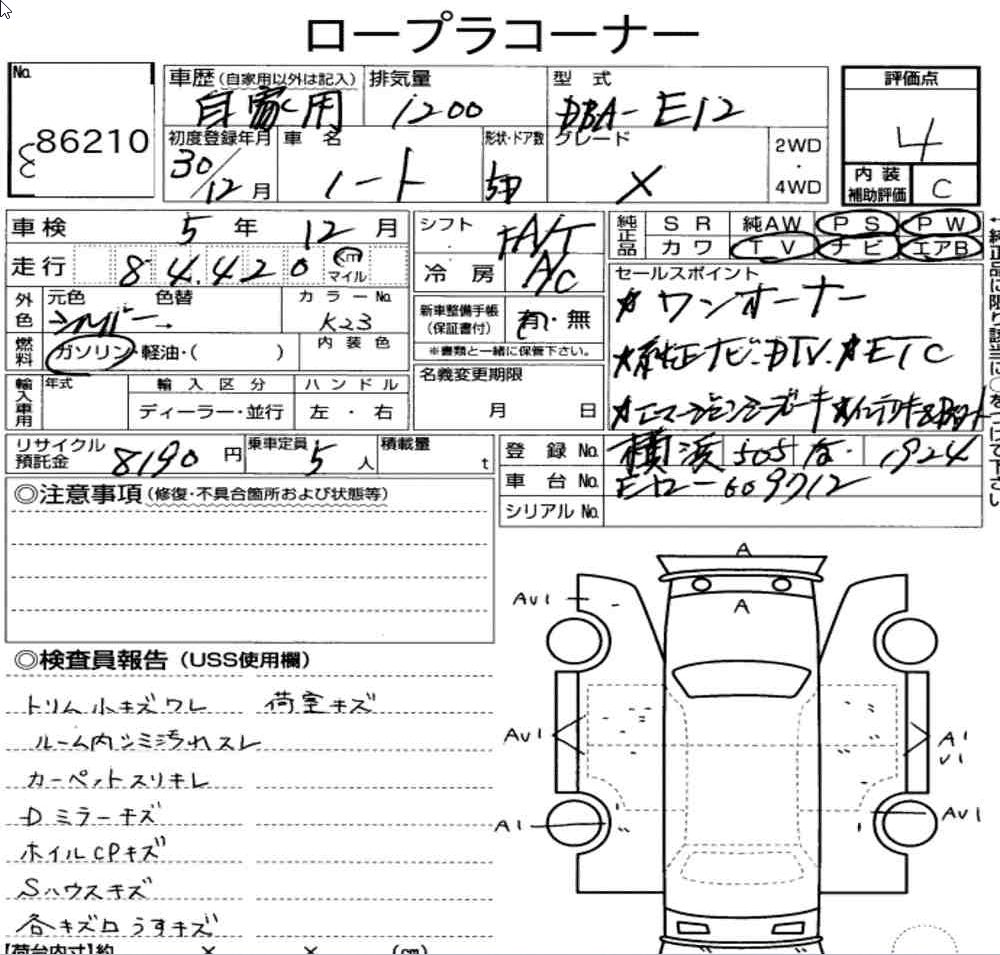 ロープラコーナー
No. 86210
車歴(自家用以外は記入) 自家用
排気量 1200
型式 DBA-E12
評価点 4
初度登録年月 30/12月
車名 ノート
形状・ドア数 5D
グレード X
2WD・4WD
内装補助評価 C
車検 5年12月
シフト FA/T
純正品 SR 純AW PS PW
カワ TV ナビ エアB
走行 84,420 km マイル
冷房 A/C
セールスポイント
★ワンオーナー
★純正ナビ・DTV.★ETC
外色 元色 シルバー 色替→ カラーNo. K23
新車整備手帳(保証書付) 有・無
※書類と一緒に保管下さい。
燃料 ガソリン・軽油・( ) 内装色
名義変更期限 月 日
輸入車用 年式 輸入区分 ハンドル
ディーラー・並行 左・右
リサイクル預託金 8190円
乗車定員 5人
積載量 t
登録No. 横浜 505 な・1924
車台No. E12-609712
シリアルNo.
◎注意事項(修復・不具合箇所および状態等)
◎検査員報告(USS使用欄)
トリム小キズワレ 荷室キズ
ルーム内シミ汚れスレ
カーペットスリキレ
Dミラーキズ
ホイルCPキズ
Sハウスキズ
各キズ凹うすキズ
【荷台内寸】約 × × (cm)
A
A
AU1
AU1
A1
A1
U1
AU1